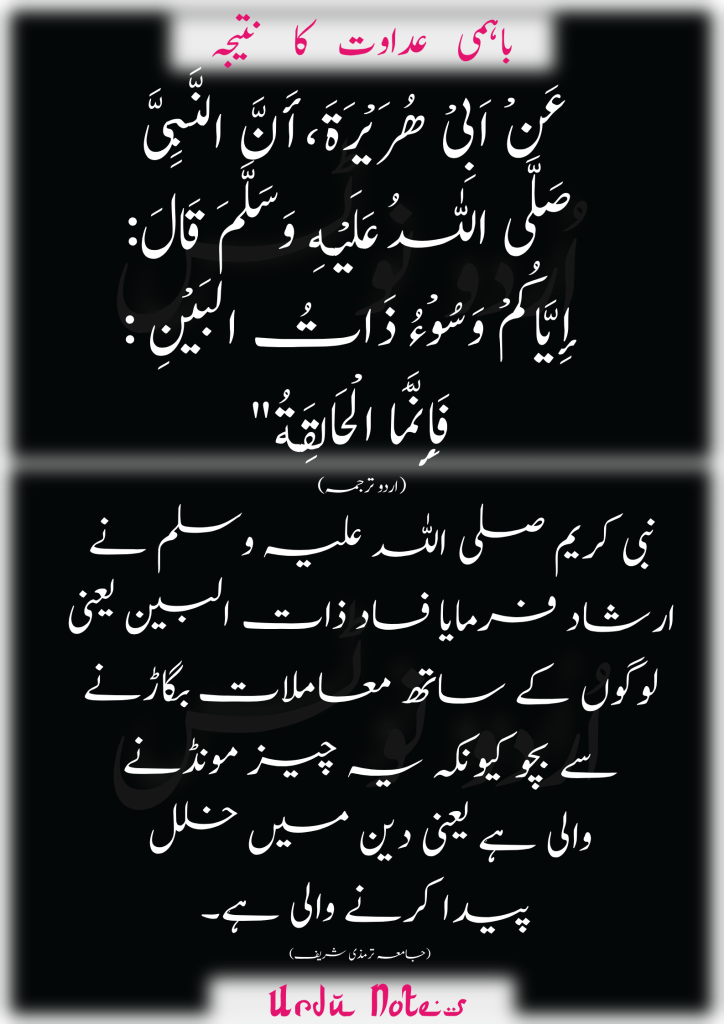 باہمی عداوت کا نتیجہ
عَنْ اَبِیْ ھُرَیْرَۃَ، أَنَّ النَّبِیَّ
صَلَّی اللہُ عَلَیْہِ وَسَلَّمَ قَالَ:
إِیَّاکُمْ وَسُوْءُ ذَاتُ البَیْنِ :
فَإِنَّمَا الْحَالِقَۃُ"
(اردو ترجمہ)
نبی کریم صلی اللہ علیہ وسلم نے
ارشاد فرمایا فساد ذات البین یعنی
لوگوں کے ساتھ معاملات بگاڑنے
سے بچو کیونکہ یہ چیز مونڈنے
والی ہے یعنی دین میں خلل
پیدا کرنے والی ہے۔
(جامعہ ترمذی شریف)
Urdu Notes
اُردو نوٹس
اُردو نوٹس